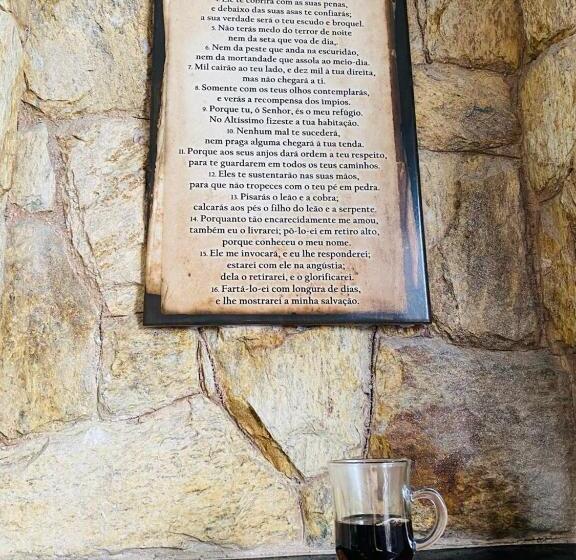 4. Ele te cobrirá com as suas penas,
e debaixo das suas asas te confiarás;
a sua verdade será o teu escudo e broquel.
5. Não terás medo do terror de noite
nem da seta que voa de dia,
6. Nem da peste que anda na escuridão,
nem da mortandade que assola ao meio-dia.
7. Mil cairão ao teu lado, e dez mil à tua direita,
mas não chegará a ti.
8. Somente com os teus olhos contemplarás,
e verás a recompensa dos ímpios.
9. Porque tu, ó Senhor, és o meu refúgio.
No Altíssimo fizeste a tua habitação.
10. Nenhum mal te sucederá,
nem praga alguma chegará à tua tenda.
11. Porque aos seus anjos dará ordem a teu respeito,
para te guardarem em todos os teus caminhos.
12. Eles te sustentarão nas suas mãos,
para que não tropeces com o teu pé em pedra.
13. Pisarás o leão e a cobra;
calcarás aos pés o filho do leão e a serpente.
14. Porquanto tão encarecidamente me amou,
também eu o livrarei; pô-lo-ei em retiro alto,
porque conheceu o meu nome.
15. Ele me invocará, e eu lhe responderei;
estarei com ele na angústia;
dela o retirarei, e o glorificarei.
16. Fartá-lo-ei com longura de dias,
e lhe mostrarei a minha salvação.